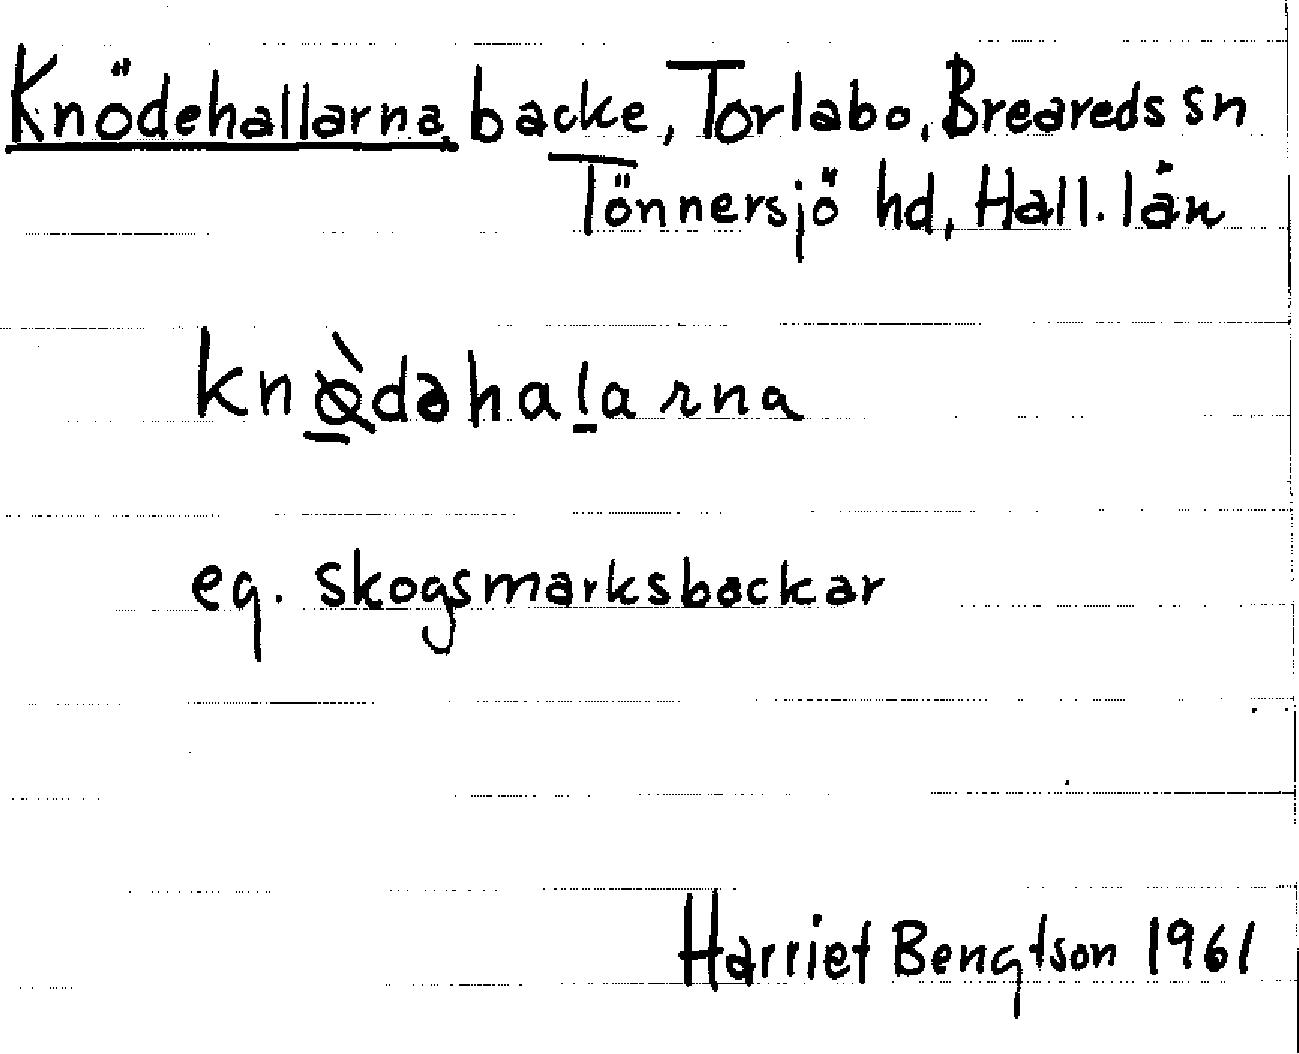 Knödehallarna backe, Torlabo, Breareds sn
Tönnersjö hd, Hall. län
knø̀dəhalarna
eg. skogsmarksbackar
Harriet Bengtson 1961